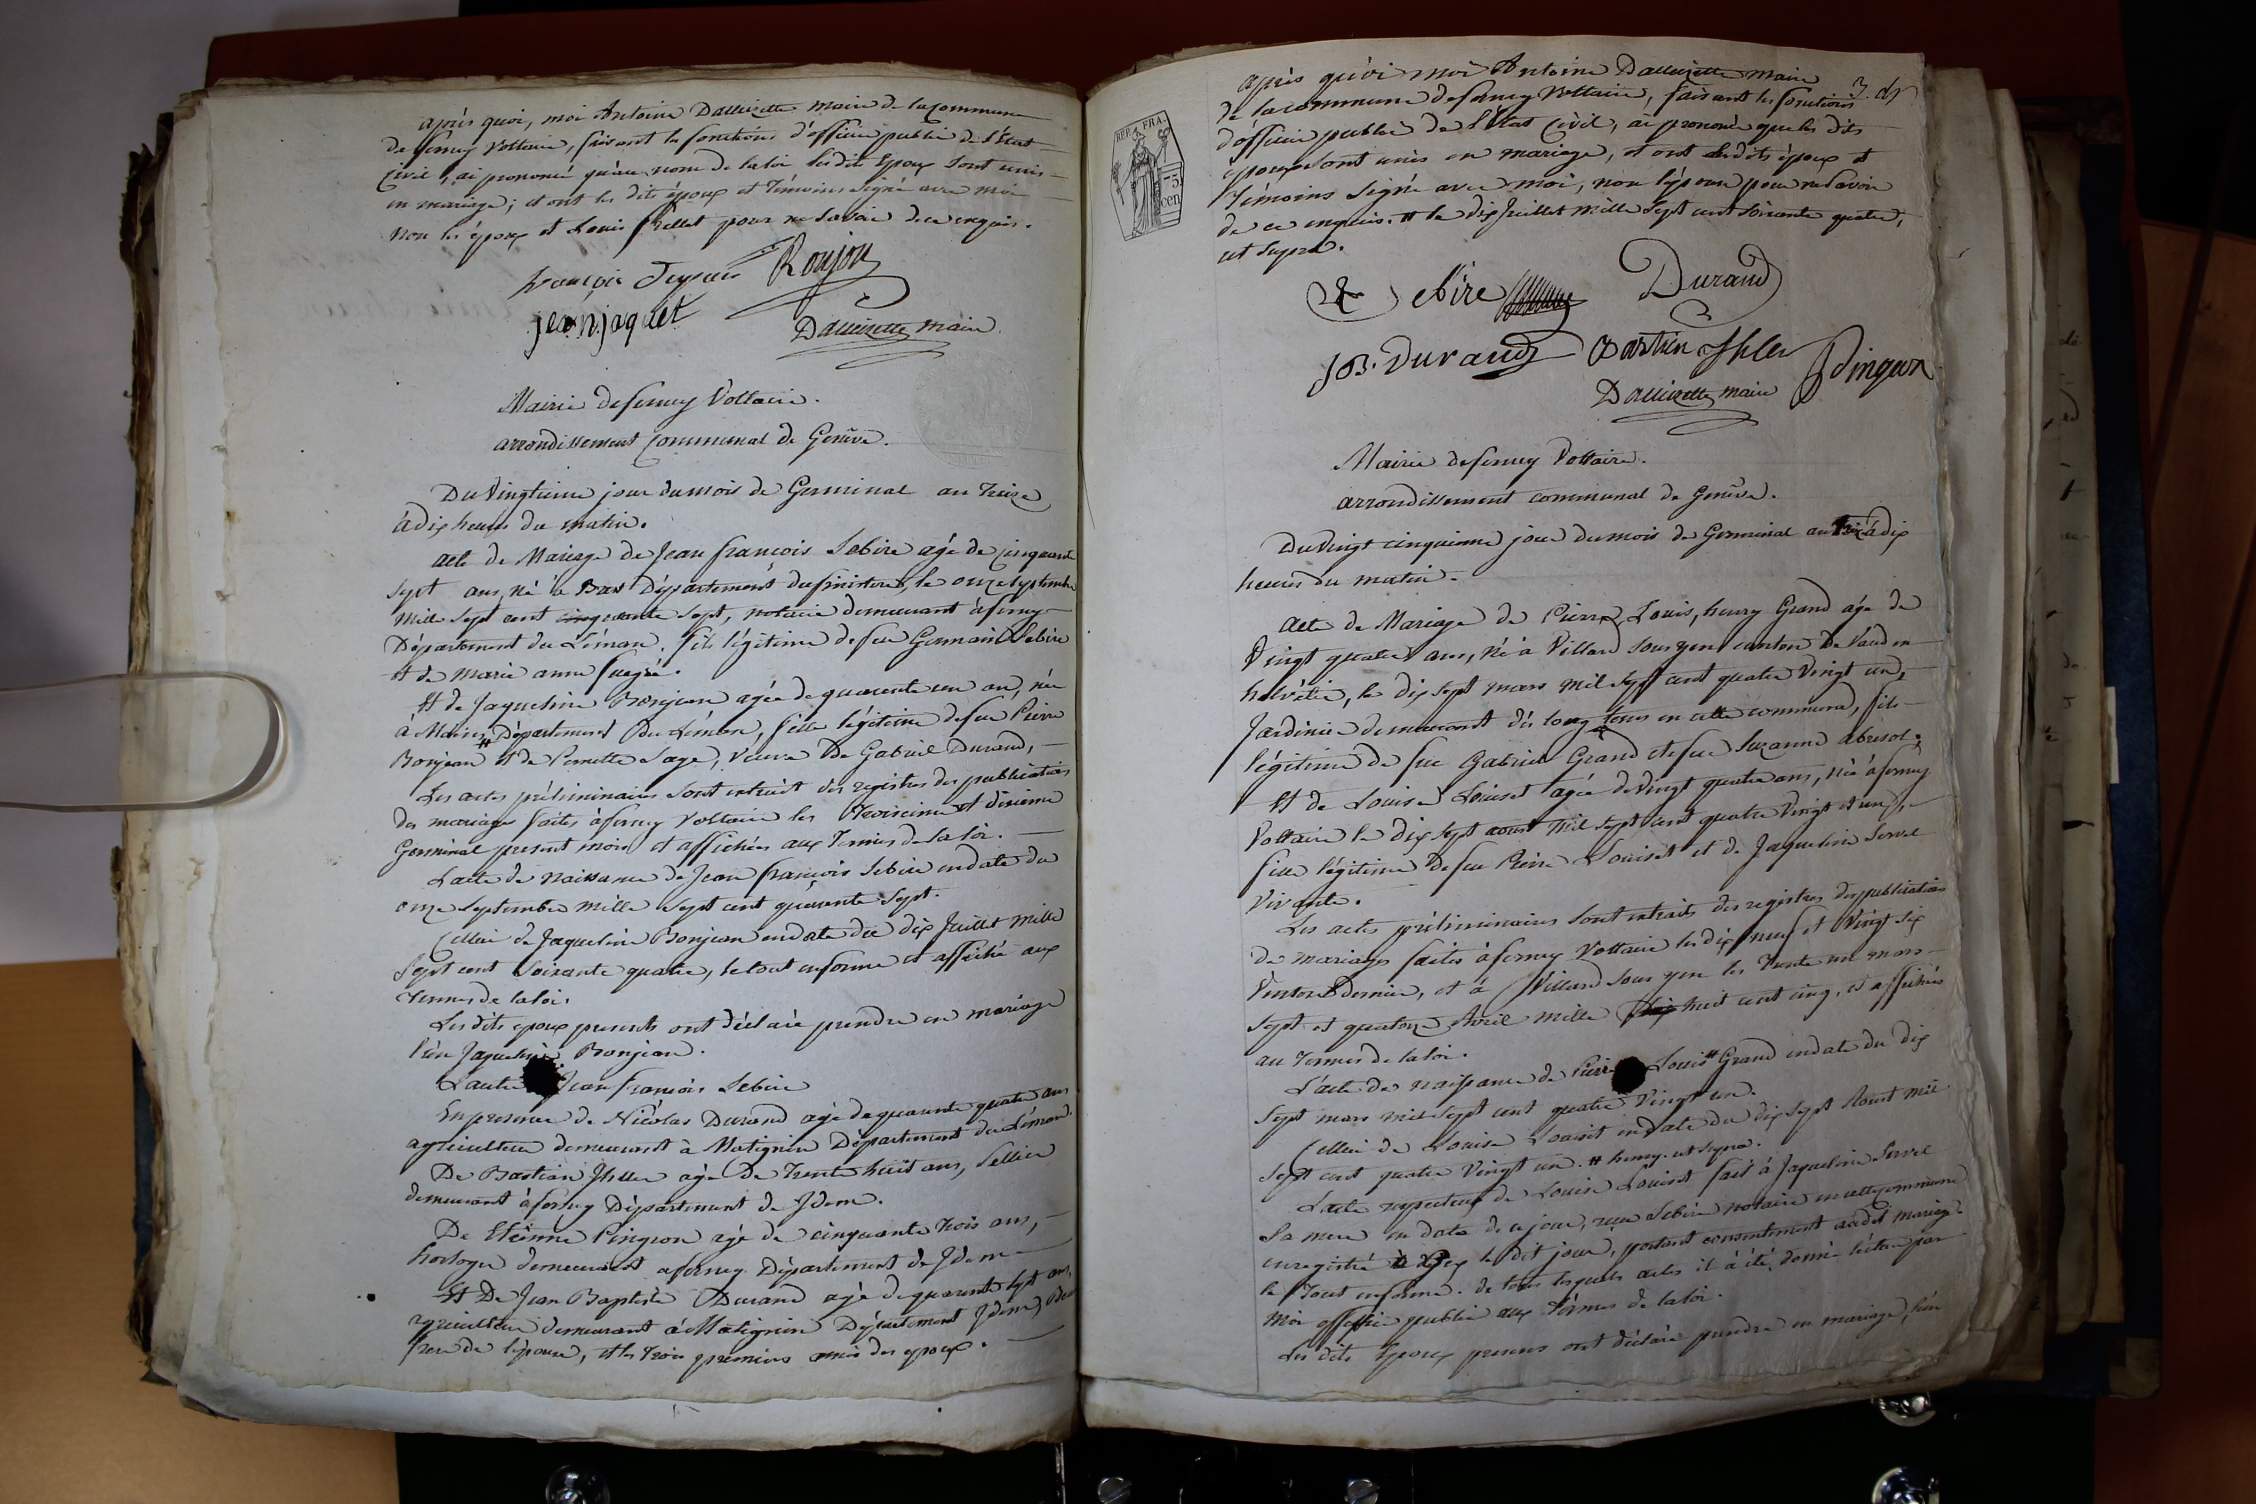 après quoi, moi Antoine Dallizette maire de la commune
de ferney Voltaire, faisant les fonctions d'officier public de l'État
Civil, ai prononcé qu'au nom de la loi les dits Epoux sont unis
en mariage; et ont les dits époux et témoins signé avec moi
non les époux et Louis pour ne savoir de ce enquis.
françois Roujou
jean jaquet
Dallizette maire
Mairie de ferney Voltaire.
arrondissement Communal de Genève.
Du Vingtieme jour du mois de Germinal an treize
à dix heures du matin.
acte de Mariage de Jean françois Sebire agé de cinquante
sept ans, né à Département du finistere, le onze septembre
mille sept cent sept, notaire demeurant à ferney
Département du Léman. fils légitime de feu Germain Sebire
et de marie anne
Et de Jaqueline Bonjean agée de quarante un an, née
à Moiry, Département Du Léman, fille légitime de feu Pierre
Bonjean et de Pernette Sage, veuve De Gabriel Durand,
Les actes préliminaires sont extrait des registres des publications
des mariages faites à ferney Voltaire les troisieme et dixieme
Germinal present mois et affichées aux termes de la loi.
L'acte de naissance de Jean françois Sebire en date du
onze septembre mille sept cent quarante sept.
Celui de Jaqueline Bonjean en date du dix Juillet mille
sept cent soixante quatre, le tout en forme et affiché aux
termes de la loi.
Les dits epoux presents ont déclaré prendre en mariage
l'un Jaqueline Bonjean.
L'autre Jean françois Sebire
En presence de Nicolas Durand agé de quarante quatre ans
agriculteur demeurant à Matignin Département du Léman.
De Bastian Ihller agé De trente huit ans, Sellier
demeurant à ferney Département de Idem.
De Etienne Pingeon agé de cinquante trois ans,
horloger demeurant a ferney Département de Idem
Et De Jean Baptiste Durand agé de quarante sept ans,
agriculteur demeurant à Matignin Département Idem,
frere de l'épouse, et les trois premiers amis des epoux.
après quoi moi Antoine Dallizette maire
3.
de la commune de ferney Voltaire, faisant les fonctions
d'officier public de l'État Civil, ai prononcé que les dits
époux sont unis en mariage, et ont les dits époux et
témoins signé avec moi, non l'épouse pour ne savoir
de ce enquis. # le dix Juillet mille sept cent soixante quatre,
ut supra.
REP. FRA.
75
cen
Sebire Durand
J B. Durand Bastien Ihler Pingeon
Dallizette maire
Mairie de ferney Voltaire.
arrondissement communal de Genève.
Du Vingt cinquieme jour du mois de Germinal an à dix
heures du matin.
acte de Mariage de Pierre, Louis, henry Grand agé de
Vingt quatre ans, né à Villard sous yens canton De Vaud en
helvétie, le dix sept mars mil sept cent quatre Vingt un,
Jardinier demeurant dès long tems en cette commune, fils
légitime de feu Gabriel Grand et de feu Suzanne
Et de Louise Louiset agée de Vingt quatre ans, née à ferney
Voltaire le dix sept aoust mil sept cent quatre Vingt et un,
fille légitime de feu Pierre Louiset et de Jaqueline Servel
Vivante.
Les actes préliminaires sont extraits des registres des publications
de mariages faites à ferney Voltaire les dix neuf et Vingt six
Ventose dernier, et à Villard sous yens les trente un mars
sept et quatorze Avril mille huit cent cinq, et affichées
au termes de la loi.
L'acte de naissance de Pierre Louis # Grand en date du dix
sept mars mil sept cent quatre Vingt un.
Celui de Louise Louiset en date du dix sept Aoust mil
sept cent quatre Vingt un. # henry. ut supra.
L'acte respectueux de Louise Louiset fait à Jaqueline Servel
Sa mere en date de ce jour, reçu Sebire notaire en cette commune
enregistré à Gex le dit jour, portant consentement audit mariage
le tout en forme. de tous lesquels actes il à été donné lecture par
moi officier public aux termes de la loi.
Les dits Epoux presens ont déclaré prendre en mariage, l'un